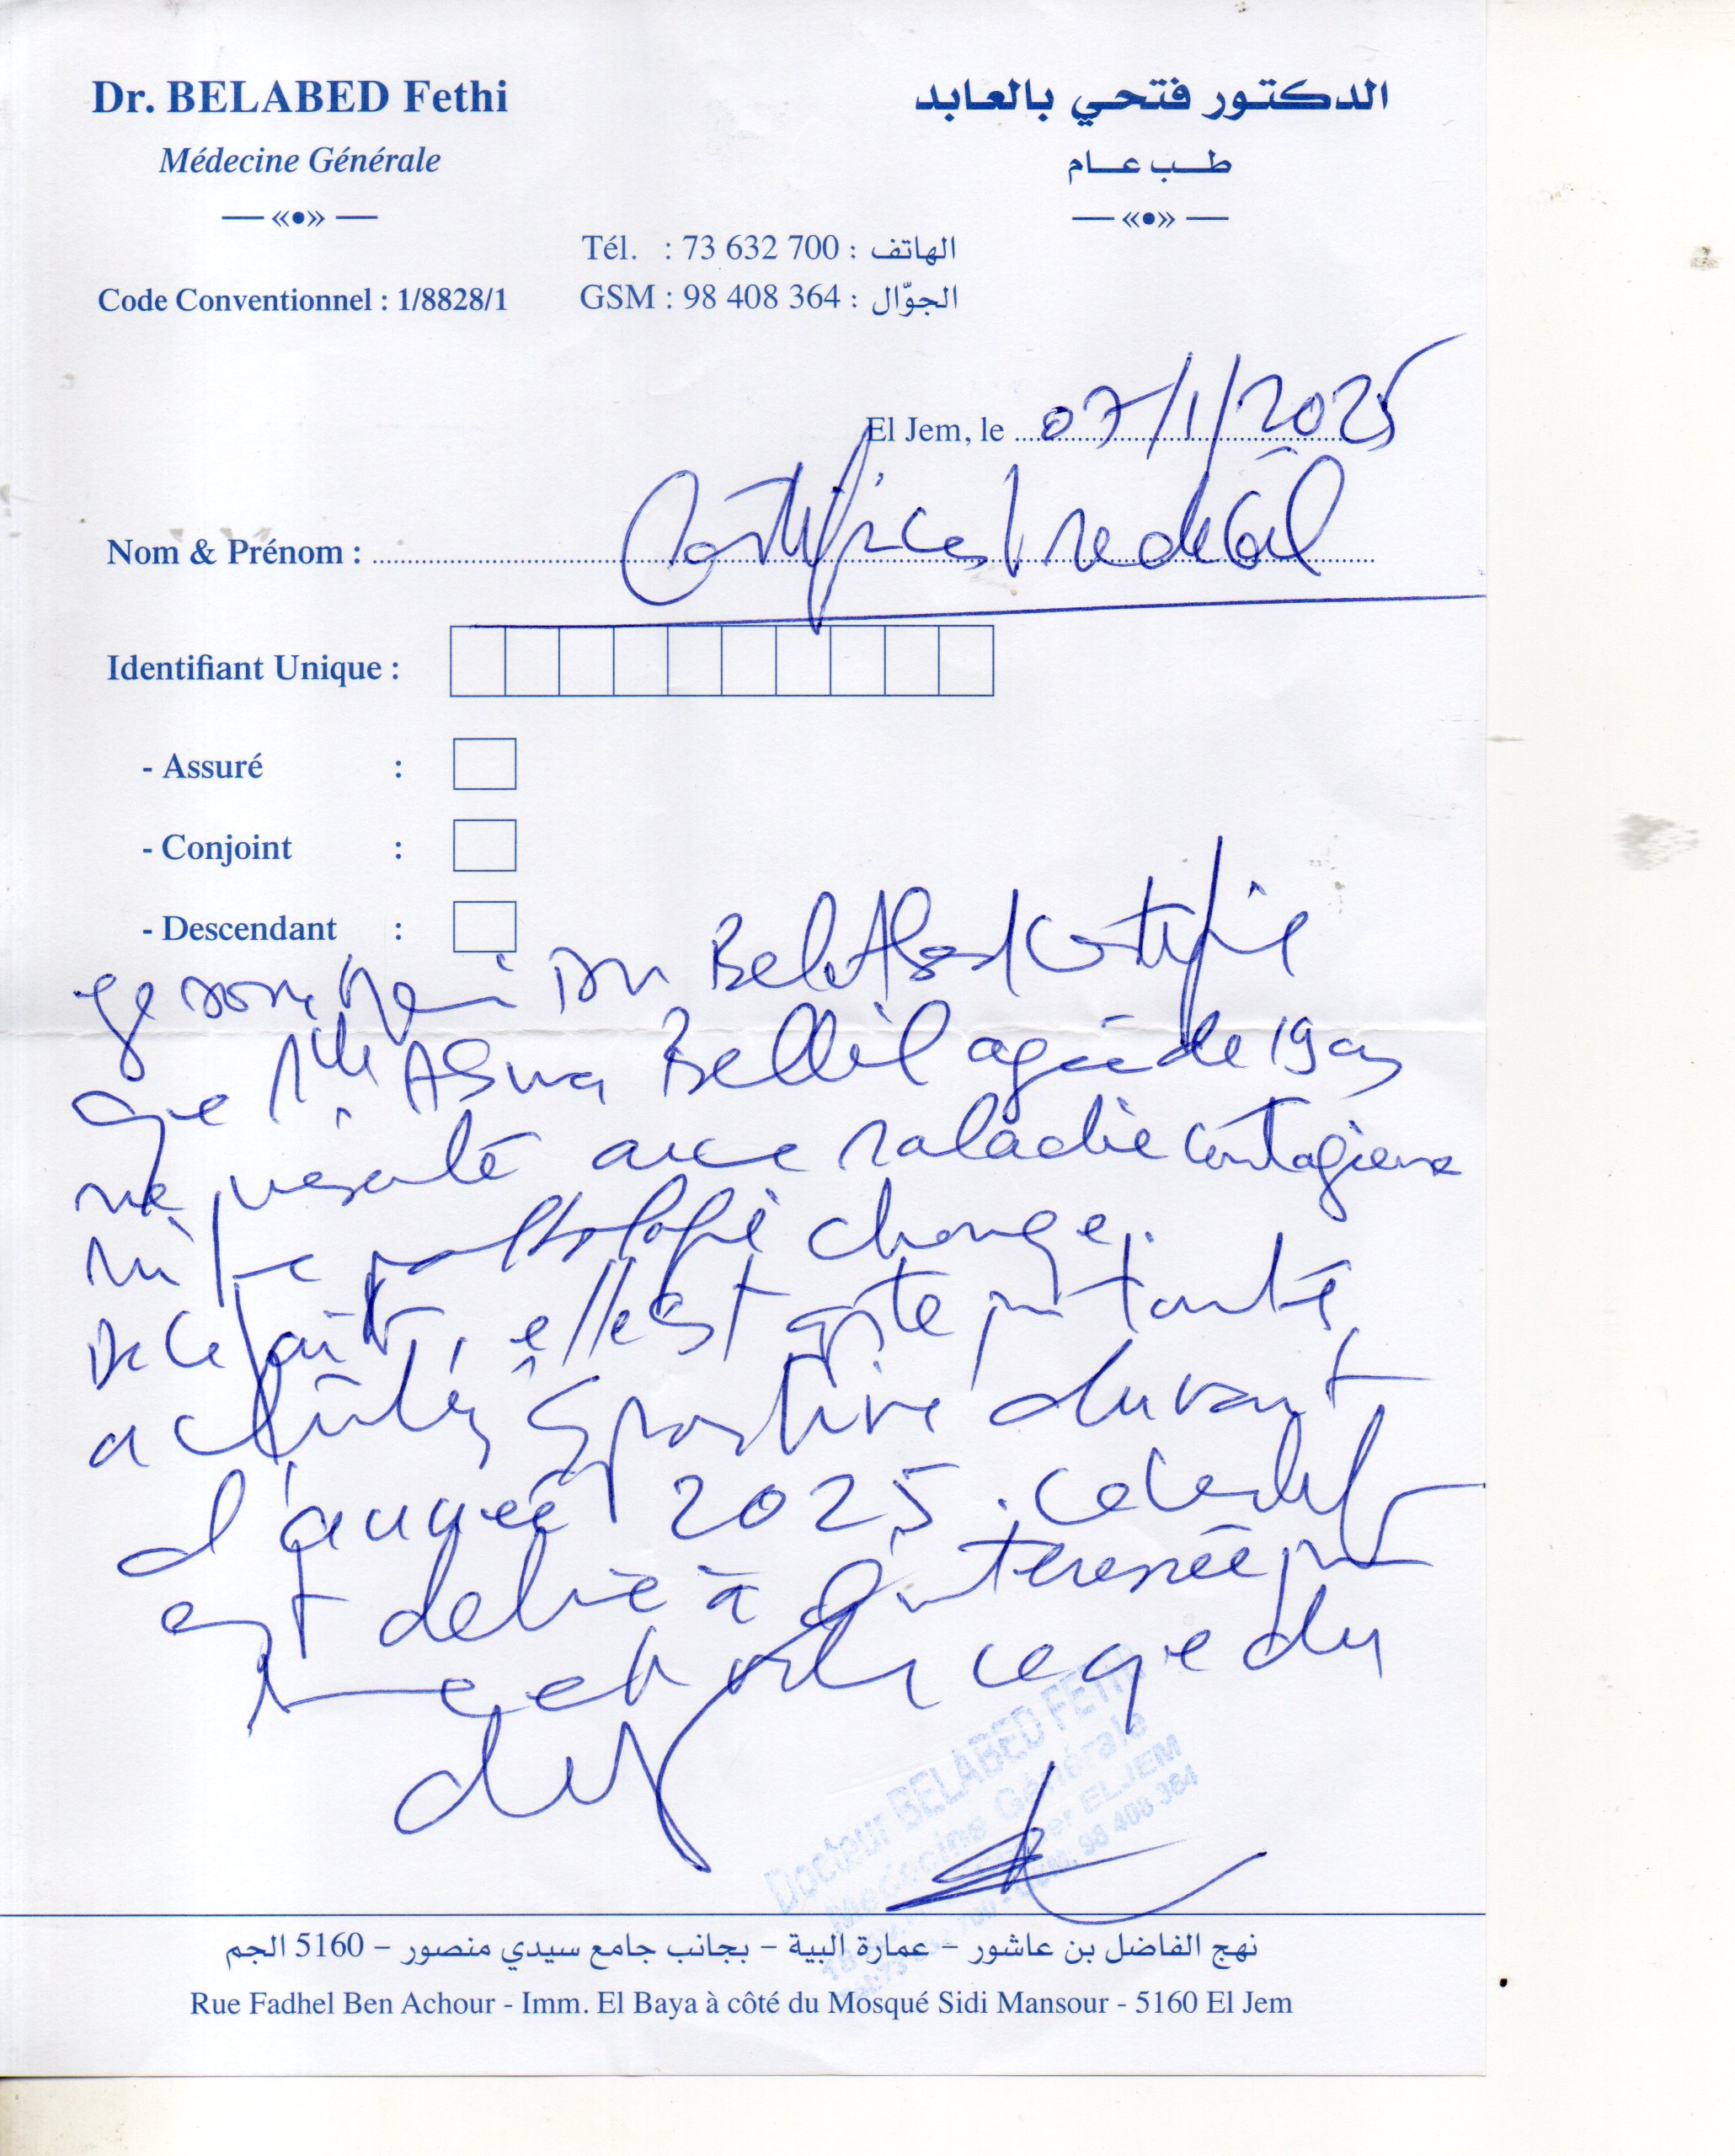 Dr. BELABED Fethi
Médecine Générale
الدكتور فتحي بالعابد
طب عام
Tél. : 73 632 700 : الهاتف
Code Conventionnel : 1/8828/1
GSM : 98 408 364 : الجوّال
El Jem, le 07/1/2025
Nom & Prénom : Certificat medical
Identifiant Unique :
- Assuré :
- Conjoint :
- Descendant :
je soussigné Dr BelAbed certifie
que Mlle Asma Bellil agée de 19 ans
ne présente aucune maladie contagieuse
ni pathologie
De ce fait, elle est apte toute
activités sportive durant
l'année 2025. ce certificat
est délivré à l'interessée pour
servir ce que du
droit
Docteur BELABED FETHI
Médecine Générale
EL JEM
98 408 364
نهج الفاضل بن عاشور – عمارة البية – بجانب جامع سيدي منصور – 5160 الجم
Rue Fadhel Ben Achour - Imm. El Baya à côté du Mosqué Sidi Mansour - 5160 El Jem